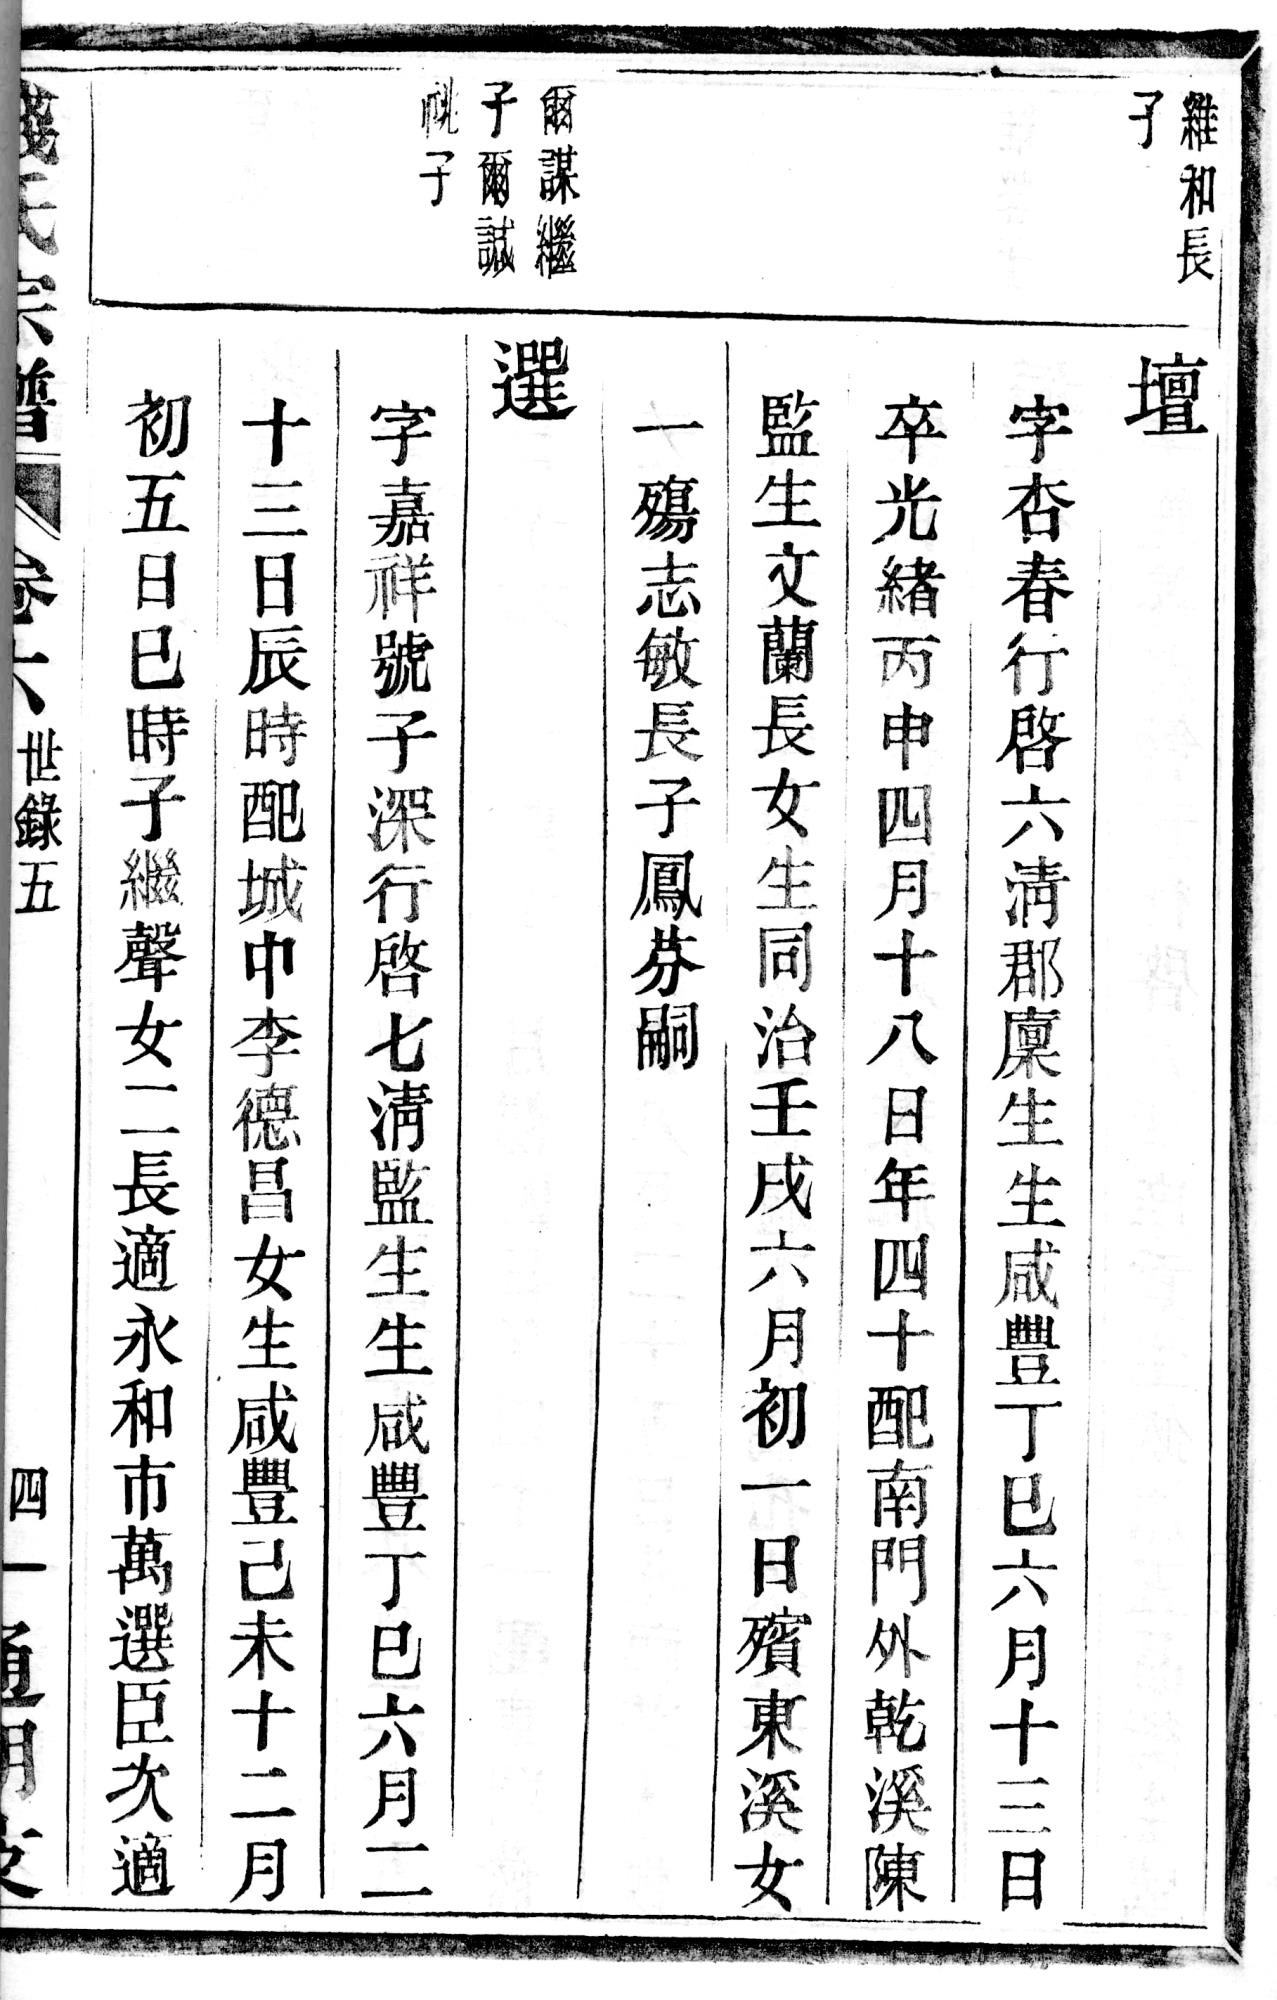 雒和長
子
壇
字杏春行啓六清郡廩生生咸豐丁巳六月十三日
卒光緒丙申四月十八日年四十配南門外乾溪陳
監生文蘭長女生同治壬戌六月初一日殯東溪女
一殤志敏長子鳳芬嗣
爾謀繼
子爾誠
祧子
選
字嘉祥號子深行啓七清監生生咸豐丁巳六月二
十三日辰時配城中李德昌女生咸豐己未十二月
初五日巳時子繼聲女二長適永和市萬選臣次適
氏宗譜
卷六
世錄五
四一
通明支